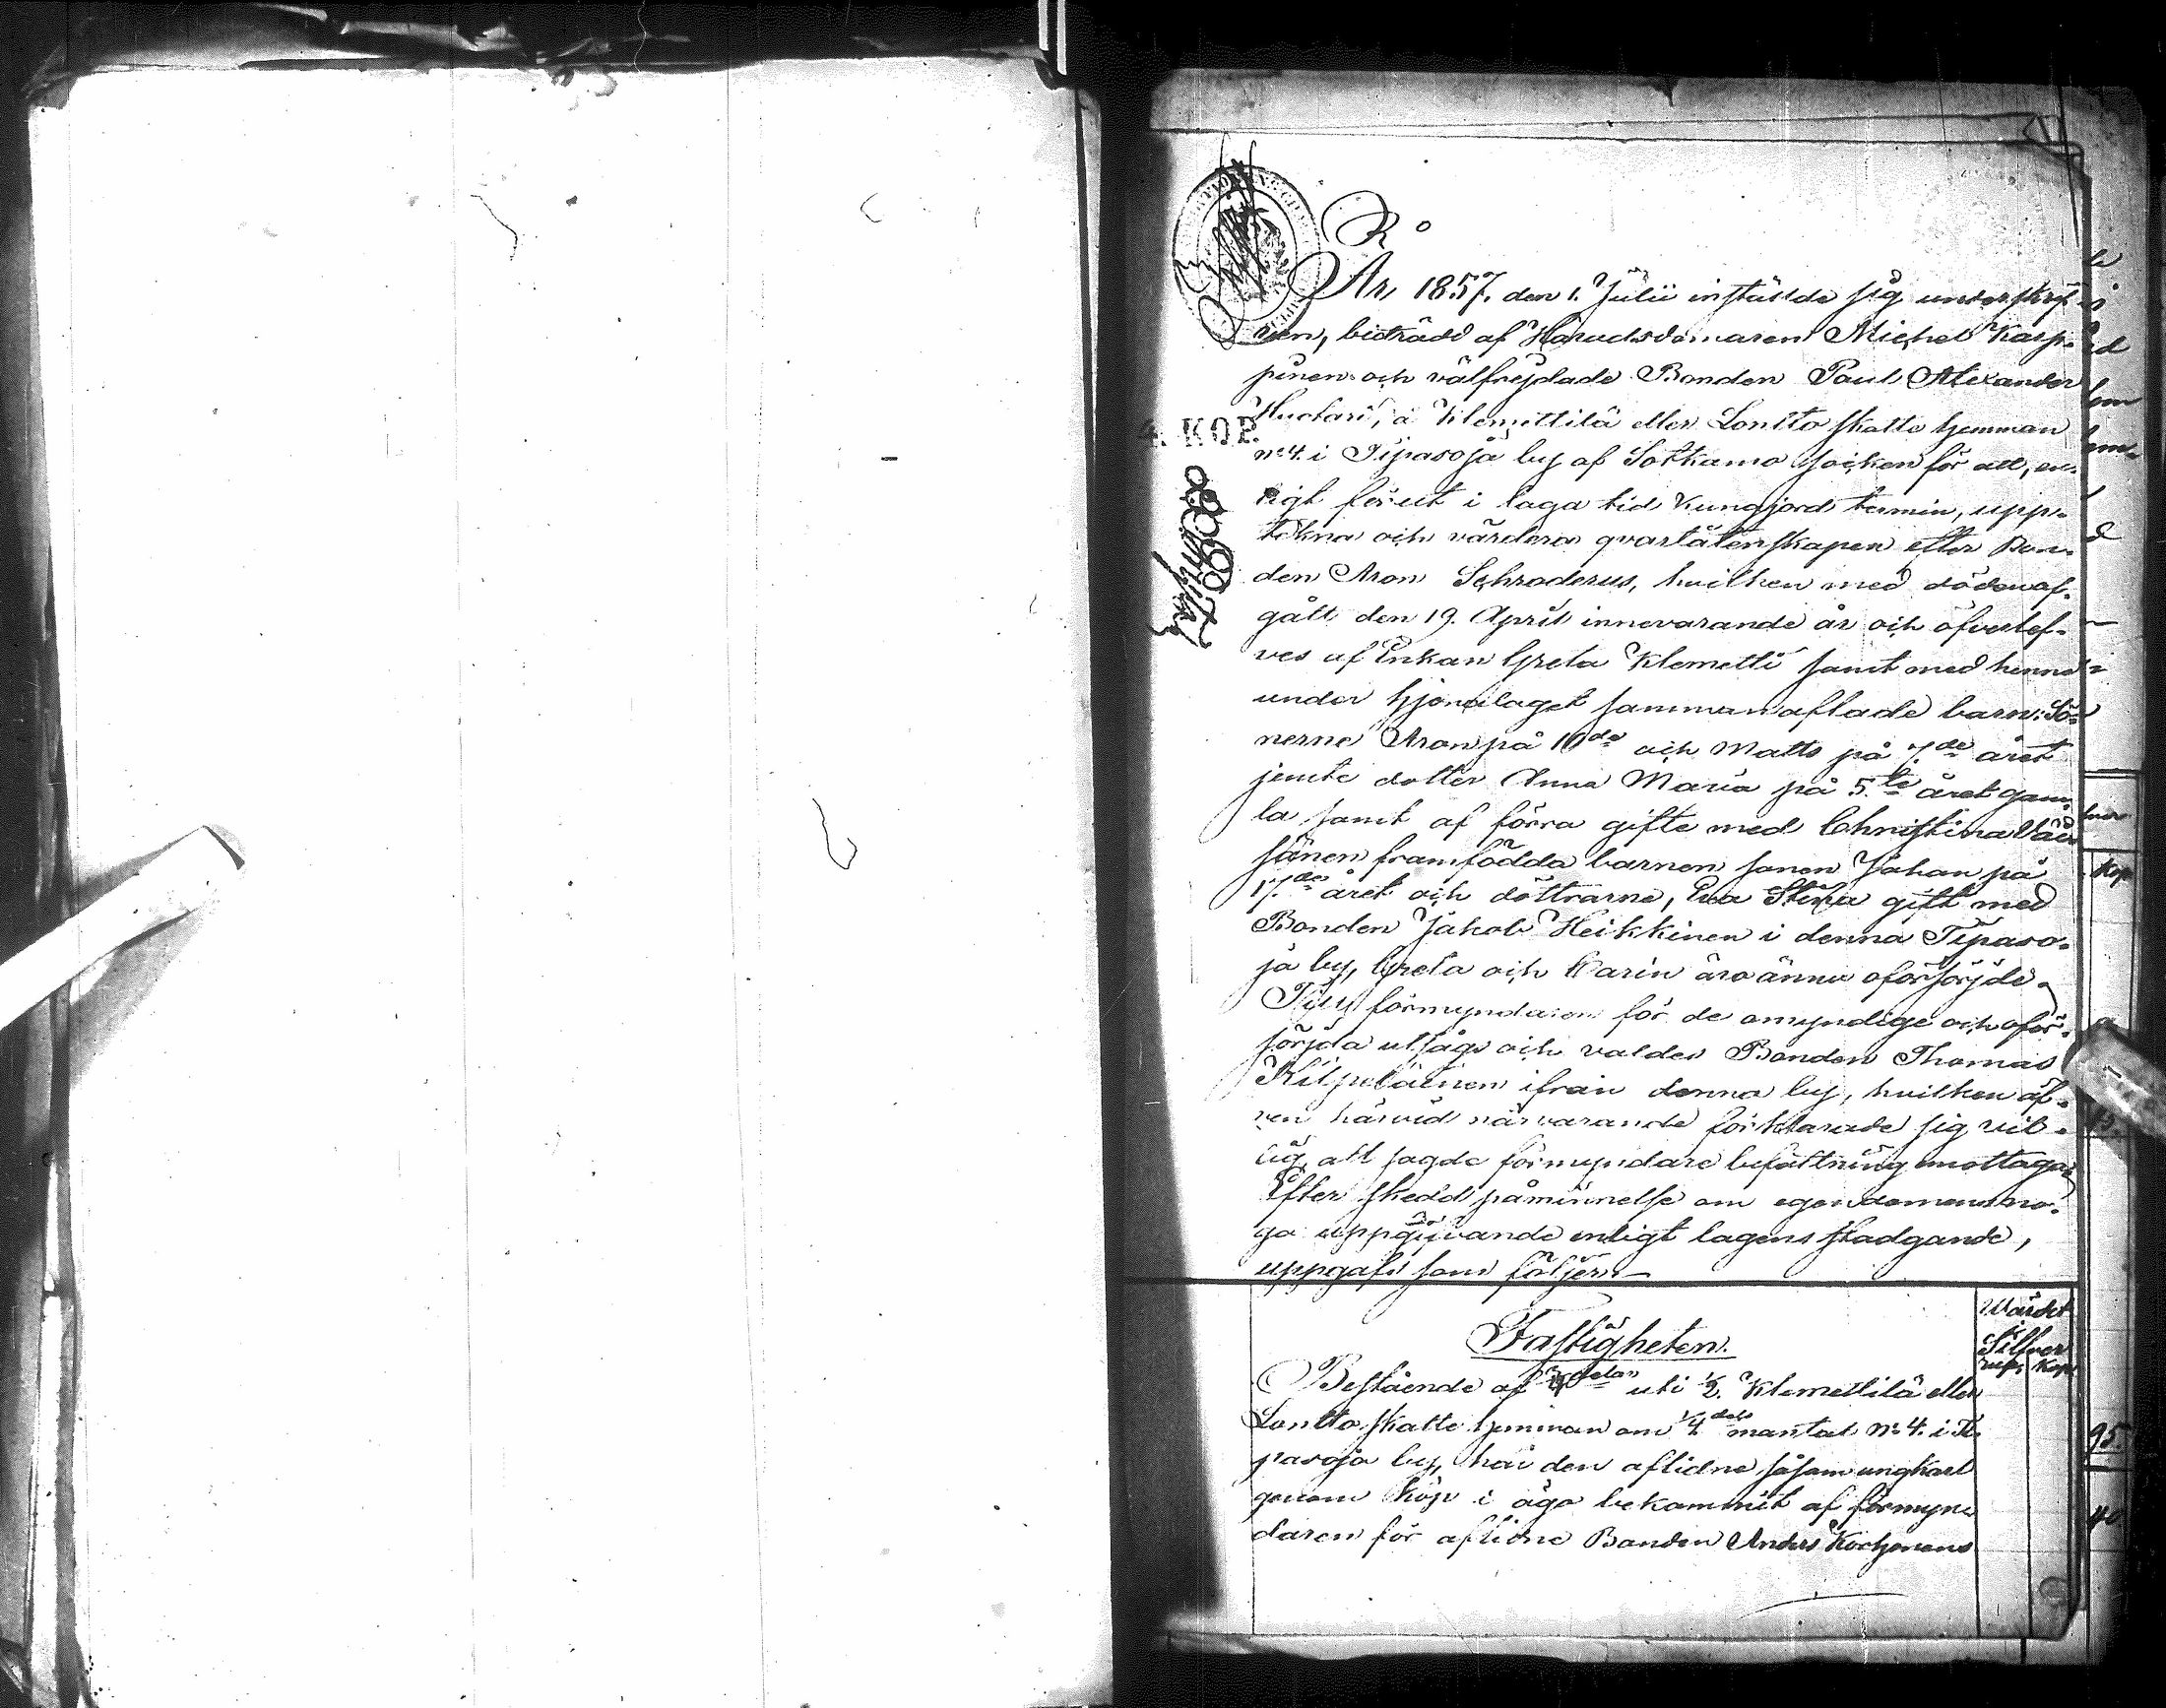 År 1857. den 1. Julii inställde sig underskrif-
ven, biträdd af Häradsdomaren Michel Karp-
pinen och välfrejdade Bonden Paul Alexander
Huotari, å Klemettilä eller Lontto skatte hemman
4. KOP.
№ 4. i Tipasoja by af Sotkamo socken för att, en-
ligt förut i laga tid kungjord termin, upp-
tekna och värdera qvarlåtenskapen efter Bon-
den Aron Schroderus, hvilken med döden af-
gått den 19. April innevarande år och öfverlef-
ves af Enkan Greta Klemetti samt med henne
under hjonelaget sammanaflade barn: Sö-
nerne Aron på 10de och Matts på 7de året
jemte dotter Anna Maria på 5.te året gam-
la samt af förra gifte med Christina Väi-
sänen framfödda barnen sonen Johan på
17.de året och döttrarne, Eva Stina gift med
Bonden Jakob Heikkinen i denna Tipaso-
ja by, Greta och Karin äro ännu oförsörjde.
Till förmyndaren för de omyndige och oför-
sörjda utsågs och valdes Bonden Thomas
Kilpeläinen ifrån denna by, hvilken äf-
ven härvid närvarande förklarade sig vil-
lig att sagde förmyndare befattning mottaga.
Efter skedd påminnelse om egendomens no-
ga uppgifvande enligt lagens stadgande,
uppgafs som följer:
Wärdet
i
Silfver
rub. Kop.
Fastigheten.
Bestående af uti 1/2. Klemettilä eller
Lontto skatte hemman om 1/4 dels mantal № 4. i Ti-
pasoja by, har den aflidne såsom ungkarl
genom köp i ägo bekommit af förmyn-
daren för aflidne Bonden Anders Korhonens
Kop
95.
40